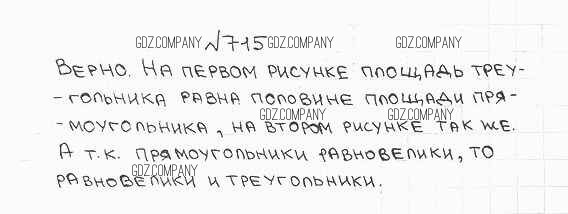 GDZ.COMPANY №715 GDZ.COMPANY GDZ.COMPANY
ВЕРНО. НА ПЕРВОМ РИСУНКЕ ПЛОЩАДЬ ТРЕУ-
-ГОЛЬНИКА РАВНА ПОЛОВИНЕ ПЛОЩАДИ ПРЯ-
GDZ.COMPANY GDZ.COMPANY
-МОУГОЛЬНИКА, НА ВТОРОМ РИСУНКЕ ТАК ЖЕ.
А Т.К. ПРЯМОУГОЛЬНИКИ РАВНОВЕЛИКИ, ТО
GDZ.COMPANY
РАВНОВЕЛИКИ И ТРЕУГОЛЬНИКИ.